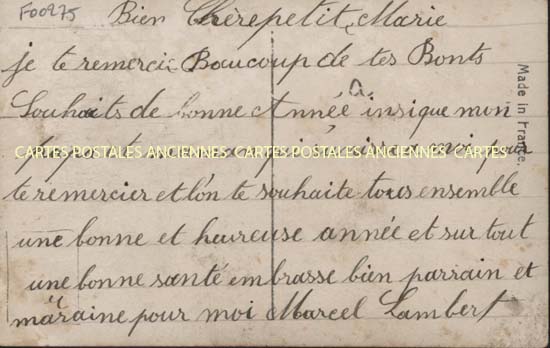 F00275
Bien Chèrepetit, Marie
je te remercie Baucoup de tes Bonts
Souhaits de bonne Année insique mon
CARTES POSTALES ANCIENNES CARTES POSTALES ANCIENNES CARTES
pour
te remercier et l'on te souhaite tous ensemble
une bonne et heureuse année et sur tout
une bonne santé embrasse bien parrain et
maraine pour moi Marcel Lambert
Made in France.